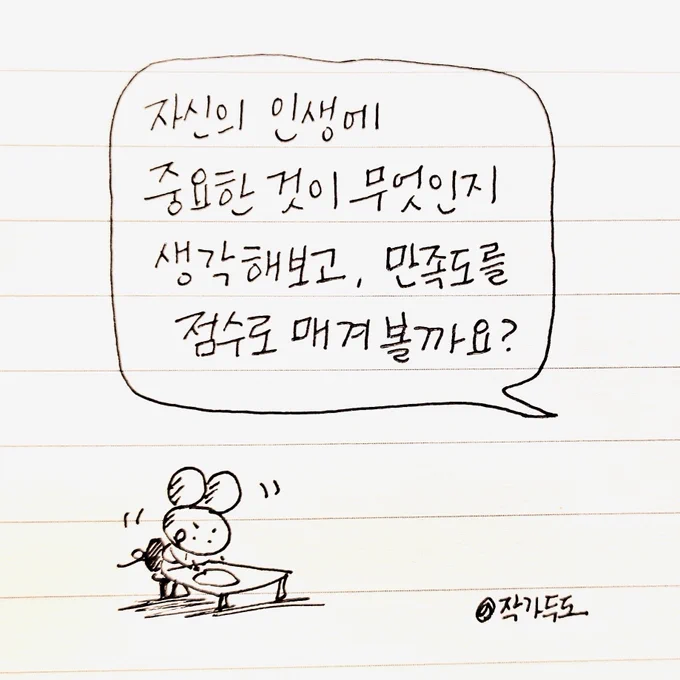 자신의 인생에
중요한 것이 무엇인지
생각해보고, 만족도를
점수로 매겨 볼까요?
@작가두도